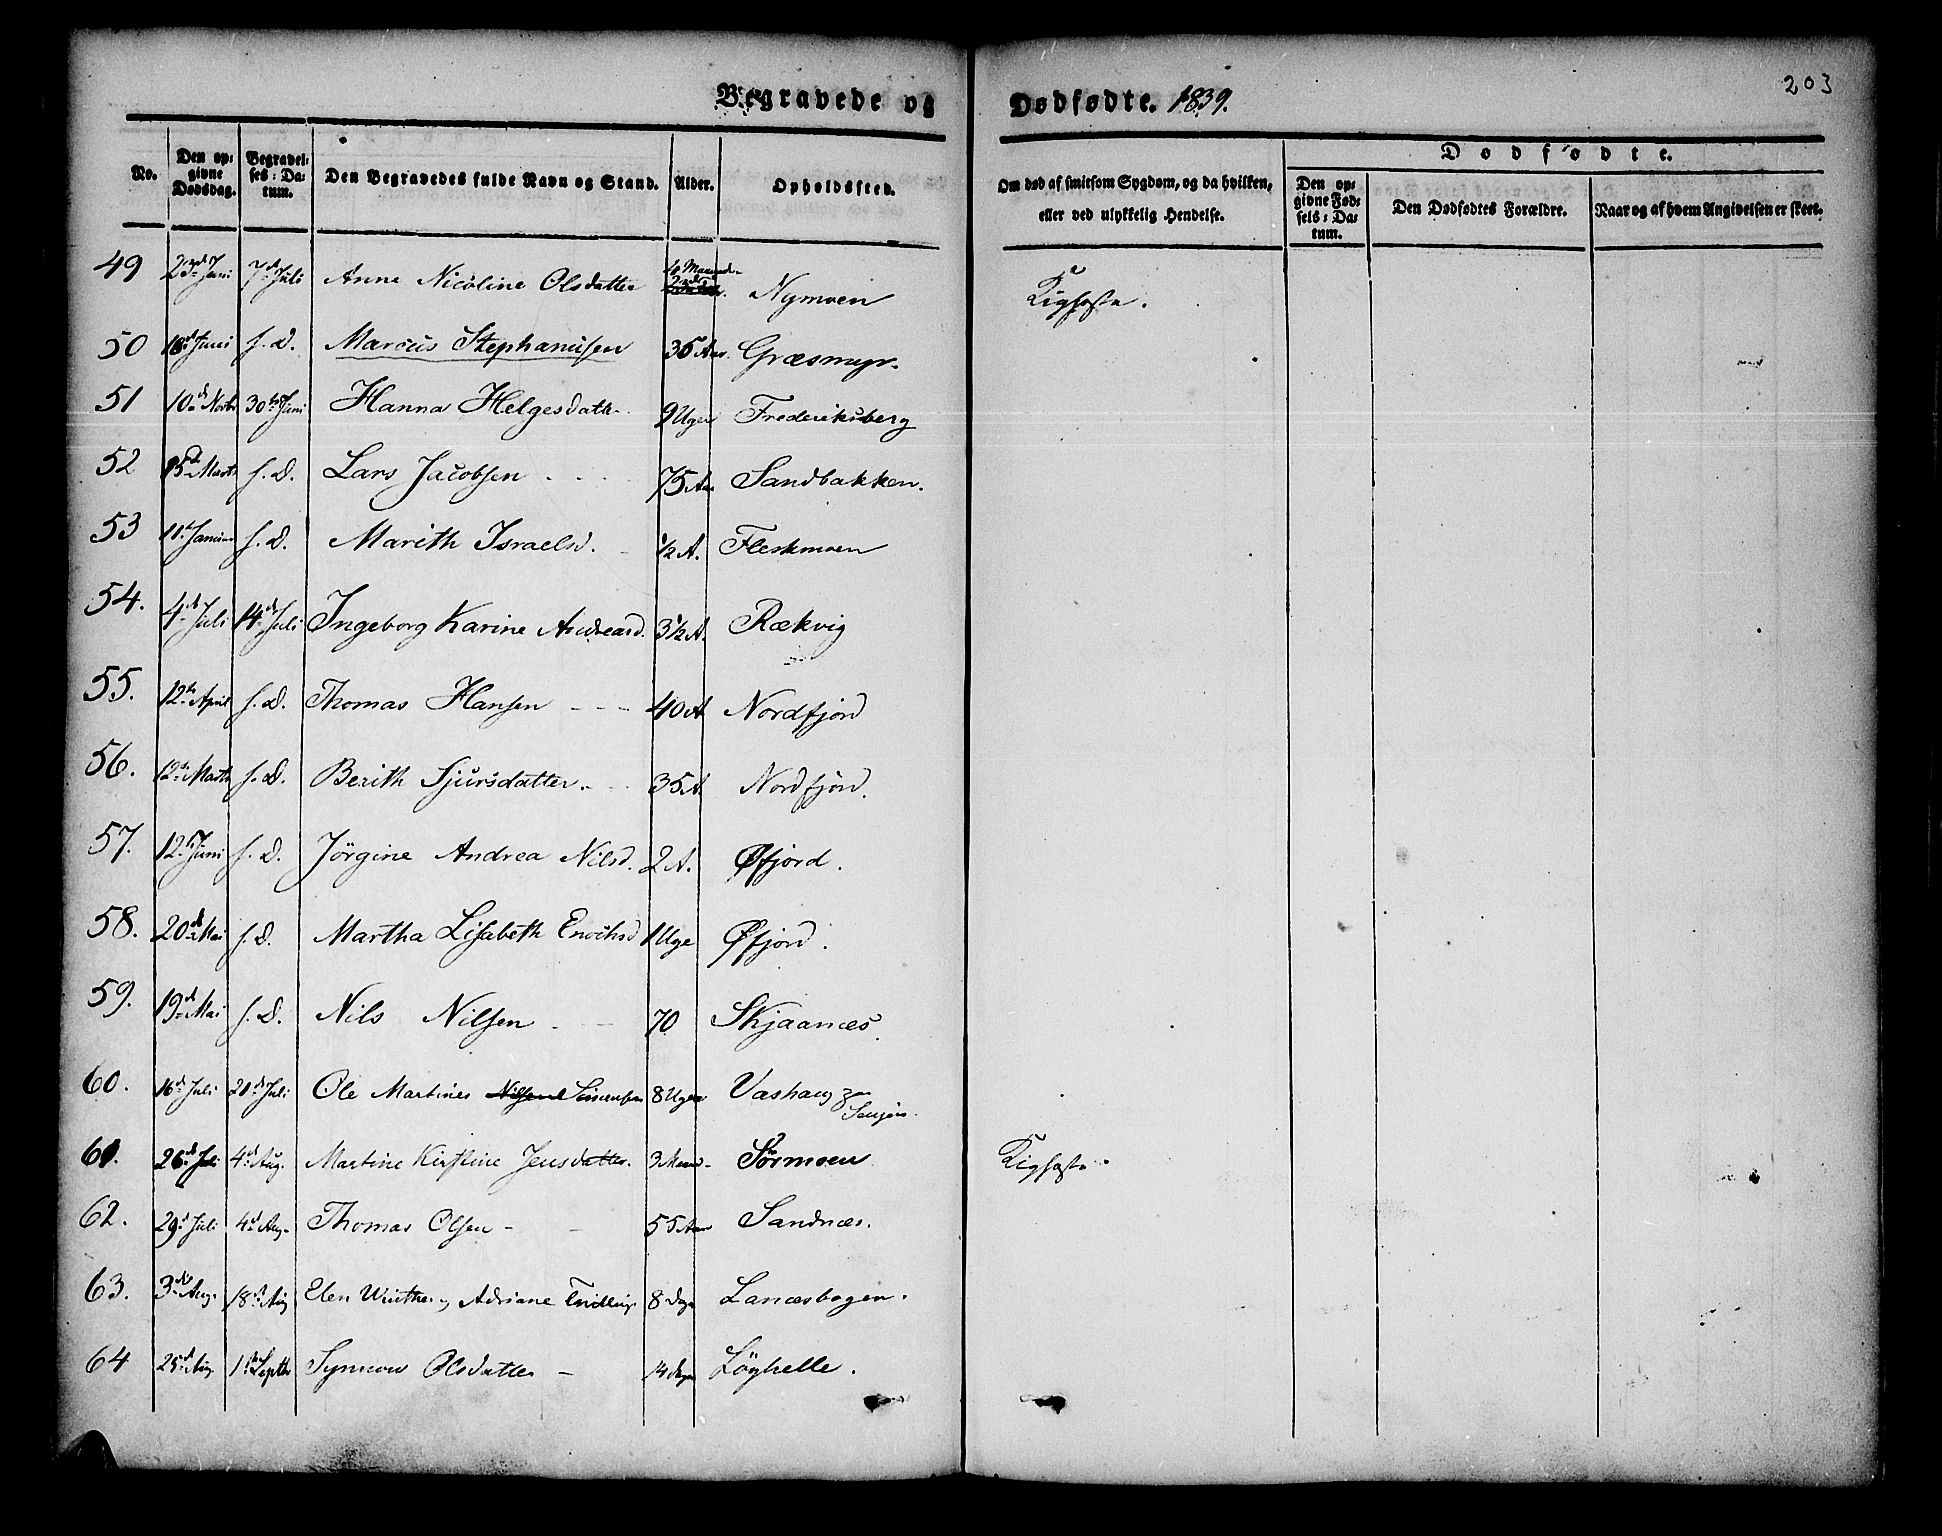 203
Begravede og Dødfødte. 1839.
No. Den opgivne Dødsdag. Begravelses-Datum. Den Begravedes fulde Navn og Stand. Alder. Opholdssted. Om død af smitsom Sygdom, og da hvilken, eller ved ulykkelig Hendelse. Dødfødte. Den opgivne Fødsels-Datum. Den Dødfødtes Forældre. Naar og af hvem Angivelsen er skeet.
49 23d Juni 7d Juli Anne Nicoline Olsdatter 4 Maaned Nymoen Kighoste.
50 18d Juni s. D. Marcus Stephanussen 36 Aar Græsmyr.
51 10d Novbr 30te Juni Hanna Helgesdatter 9 Uger Frederiksberg
52 15d Marts s. D. Lars Jacobsen 75 Aar Sandbakken.
53 s. D. Marith Israelsd. 1/2 A. Fleskmoen
54. 4d Juli 14d Juli Ingeborg Karine Andreasd. 3 1/2 A. Rækvig
55. 12te April s. D. Thomas Hansen 40 A Nordfjord
56. 12te Marts s. D. Berith Sjursdatter. 35 A Nordfjord.
57. 12te Juni s. D. Jörgine Andrea Nilsd. 2 A. Øfjord.
58. 20d Mai s. D. Martha Lisabeth Enochsd 1 Uge Øfjord.
59. 19d Mai s. D. Nils Nilsen 70 Skjaanæs.
60. 16d Juli 21d Juli Ole Martines Nilsen Simensen 8 Uger Vashaug Senjen.
61. 26d Juli 4d Aug. Martine Kirstine Jensdatter. 3 Maan. Sørmoen Kighoste.
62. 29d Juli 4d Aug. Thomas Olsen 55 Aar Sandnæs.
63. 3d Aug. 18d Aug Elen Adriane 8 Dage Lanæsbogen.
64 25d Aug 1te Septbr Synnow Olsdatter 14 Dage Löghelle.